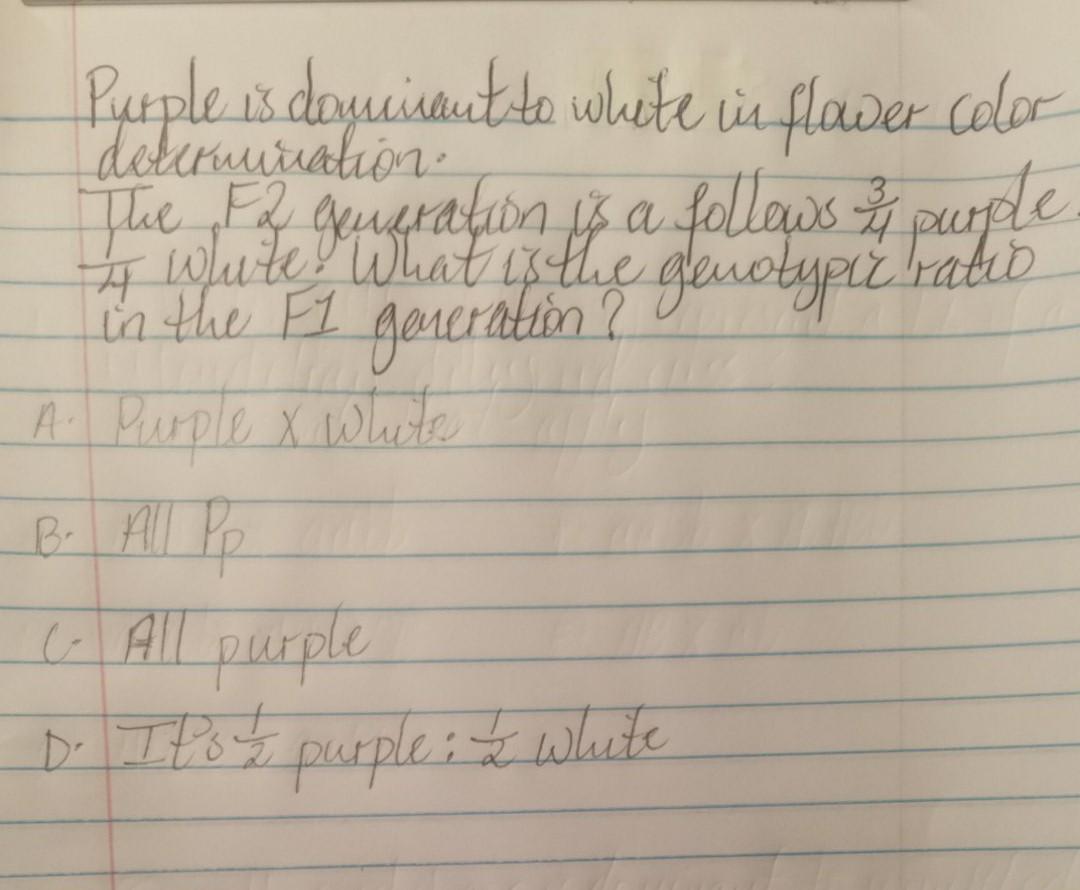 Purple is dominant to white in flower color
determination.
The F2 generation is a follows 3/4 purple.
1/4 white. What is the genotypic ratio
in the F1 generation?
A. Purple x White
B. All Pp
C. All purple
D. It's 1/2 purple : 1/2 white